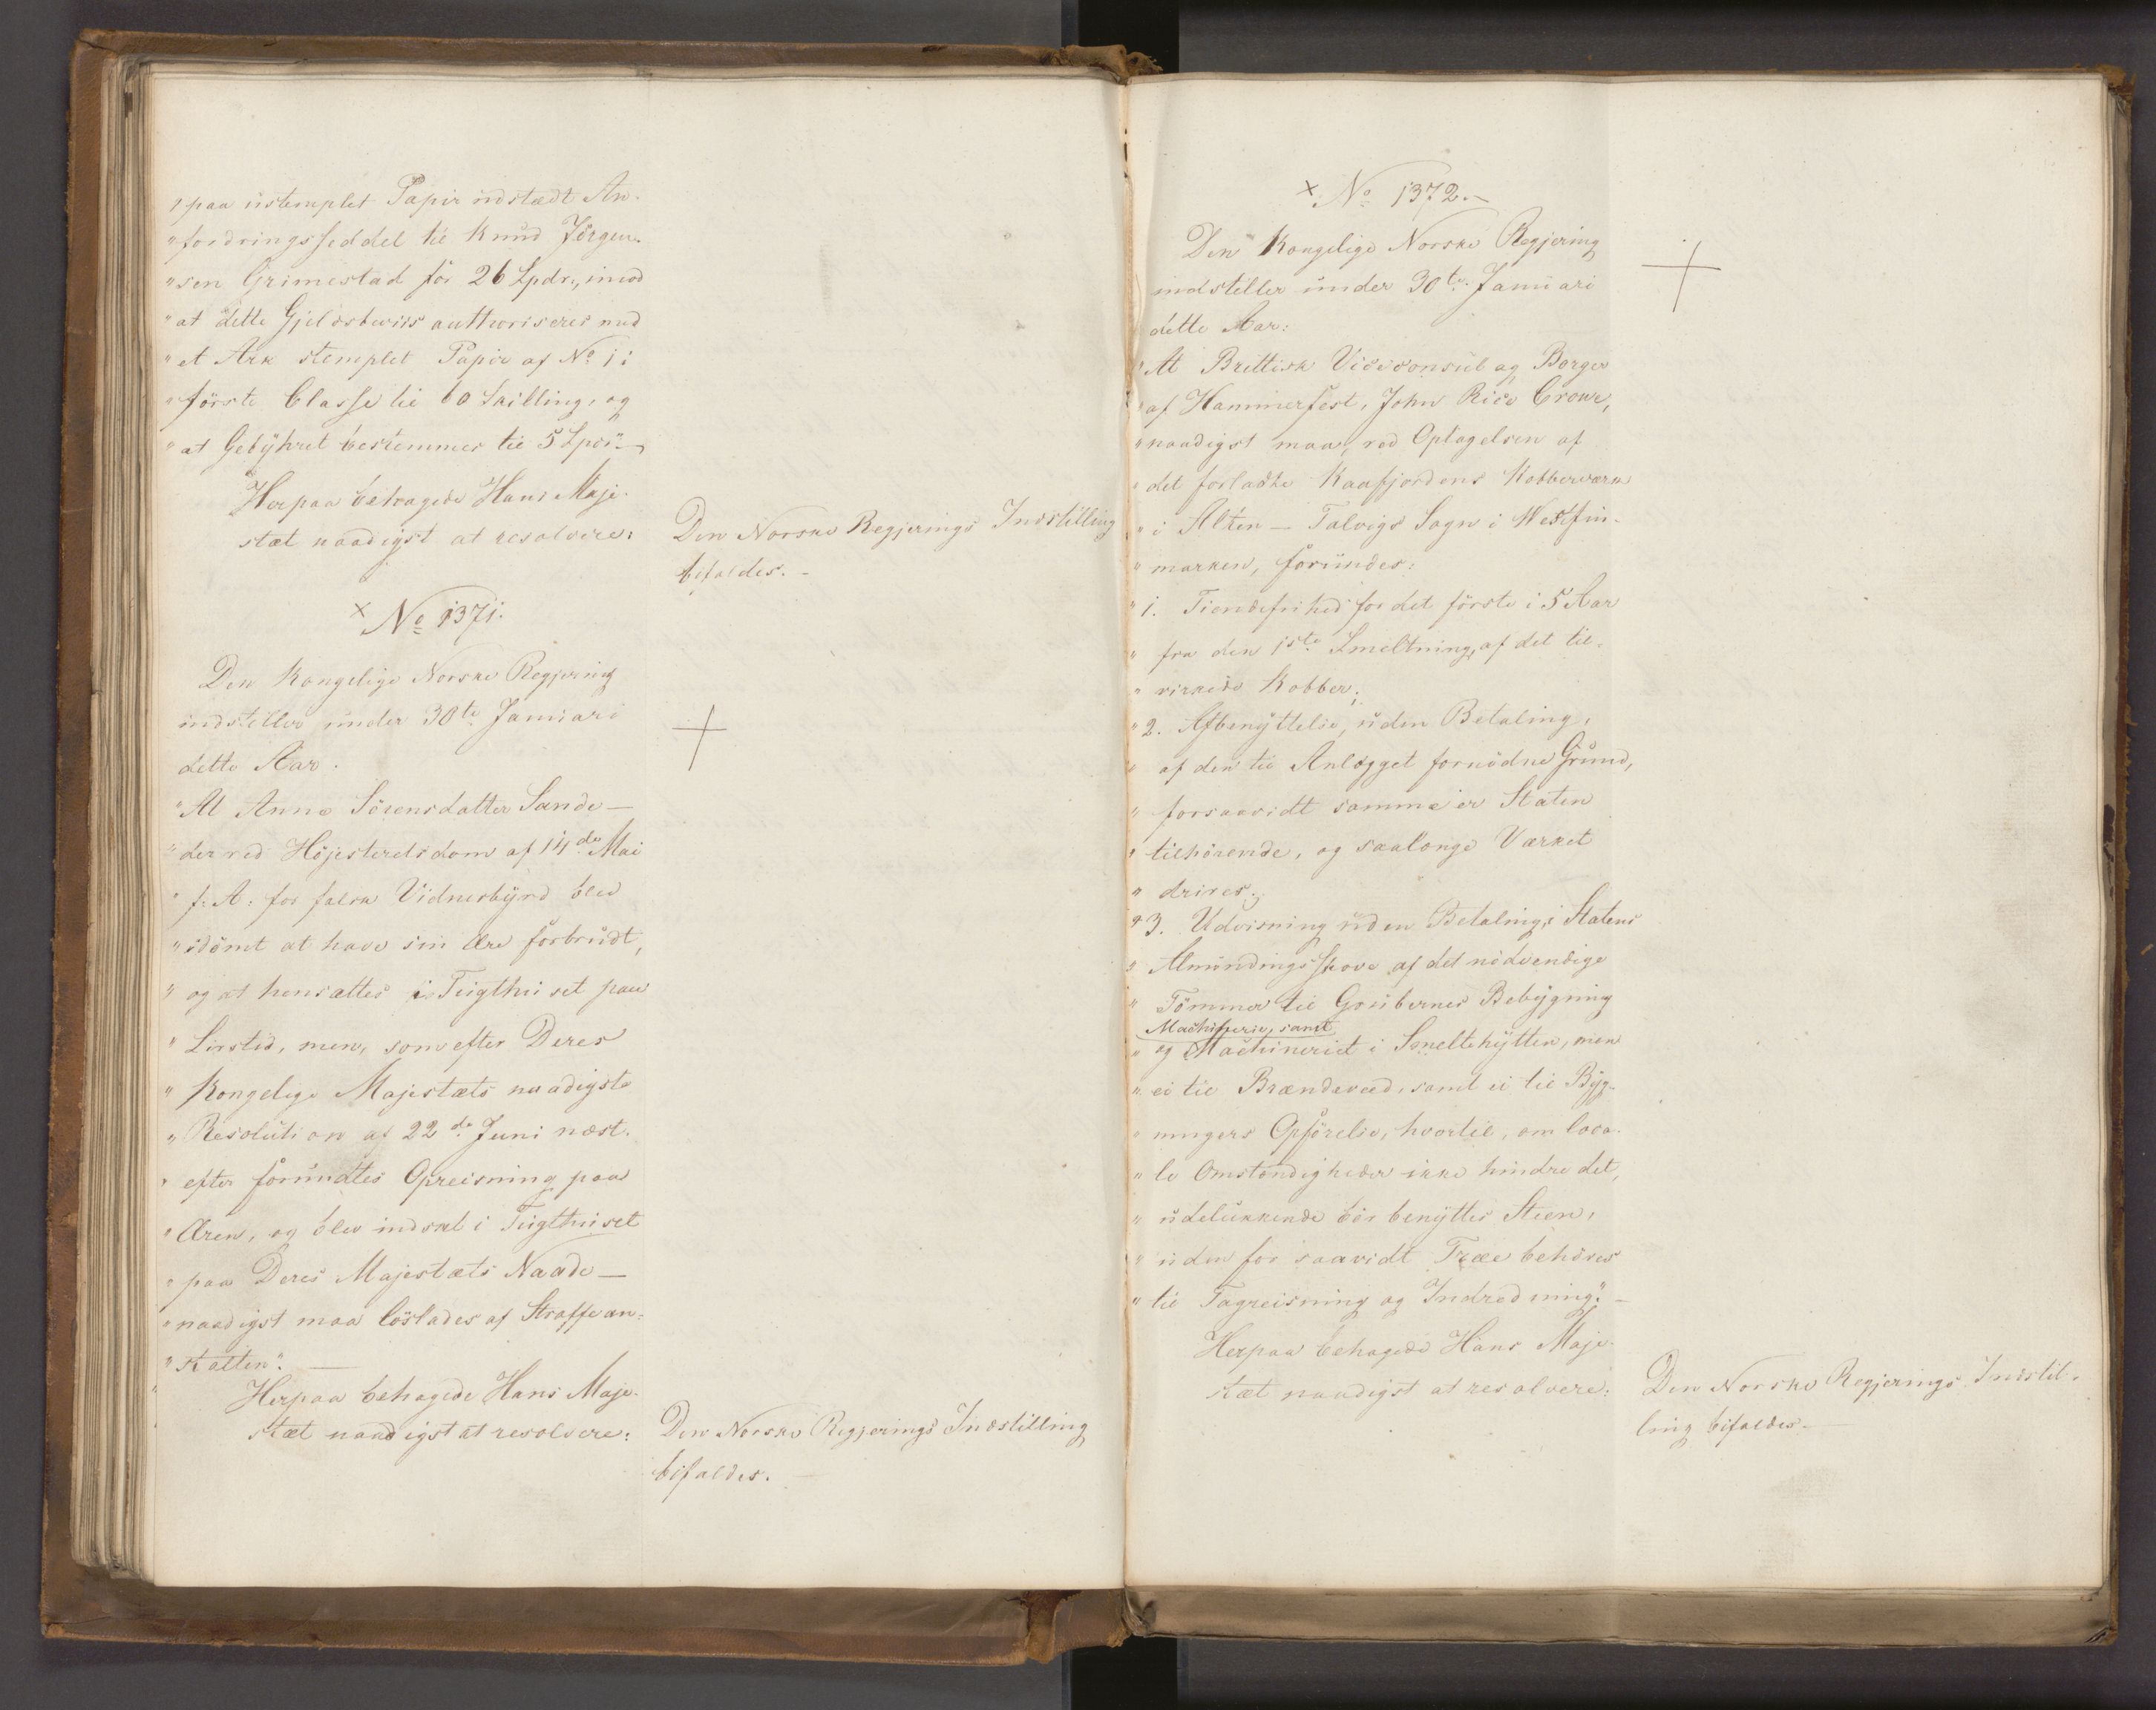 "paa ustemplet Papir udstædt An-
"fordringsseddel til Knud Jörgen-
"sen Grimestad for 26 Spdr., imod
"at dette Gjeldsbeviis authoriseres med
"et Ark stemplet Papir af No 1 i
"förste Classe til 60 Skilling, og
"at Gebÿhret bestemmes til 5 Spd".—
Herpaa behagede Hans Maje-
stæt naadigst at resolvere:
Den Norske Regjerings Indstilling
bifaldes.-
× No 1371.
Den Kongelige Norske Regjering
indstiller under 30te Januari
dette Aar.
"At Anne Sörensdatter Sande —
"der ved Höjesteretsdom af 14de Mai
"f: A: for falsk Vidnesbÿrd blev
"idömt at have sin Ære forbrudt,
"og at hensættes i Tugthuset paa
"Livstid, men, som efter Deres
"Kongelige Majestæts naadigste
"Resolution af 22de Juni næst-
"efter forundtes Opreisning paa
"Æren, og blev indsat i Tugthuset
"paa Deres Majestæts Naade —
"naadigst maa löslades af Straffean-
"stalten". —
Herpaa behagede Hans Maje-
stæt naadigst at resolvere:
Den Norske Regjerings Indstilling
bifaldes. —
× No 1372.-
Den Kongelige Norske Regjering
indstiller under 30te Januari
dette Aar:
"At Brittisk Viceconsul og Borger
"af Hammerfest, John Rice Crowe,
"naadigst maa, ved Optagelsen af
"det forladte Kaafjordens Kobberværk
"i Alten — Talvigs Sogn i Westfin-
"marken, forundes:
"1. Tiendefrihed for det förste i 5 Aar
"fra den 1ste Smeltning, af det til-
"virkede Kobber;
"2. Afbenÿttelse, uden Betaling,
"af den til Anlægget fornödne Grund,
"forsaavidt samme er Staten
"tilhörende, og saalænge Værket
"drives;
"3. Udvisning uden Betaling, i Statens
"Almindingsskove af det nödvendige
"Tömmer til Grubernes Bebÿgning
Machinerie, samt
"og Machineriet i Smeltehÿtten, men
"ei til Brændeveed, samt ei til Bÿg-
"ningers Opförelse, hvortil, om loca-
"le Omstændigheder ikke hindre det,
"udelukkende bör benÿttes Steen,
"uden for saavidt Træe behöves
"til Tagreisning og Indredning." —
Herpaa behagede Hans Maje-
stæt naadigst at resolvere:
Den Norske Regjerings Indstil-
ling bifaldes.—